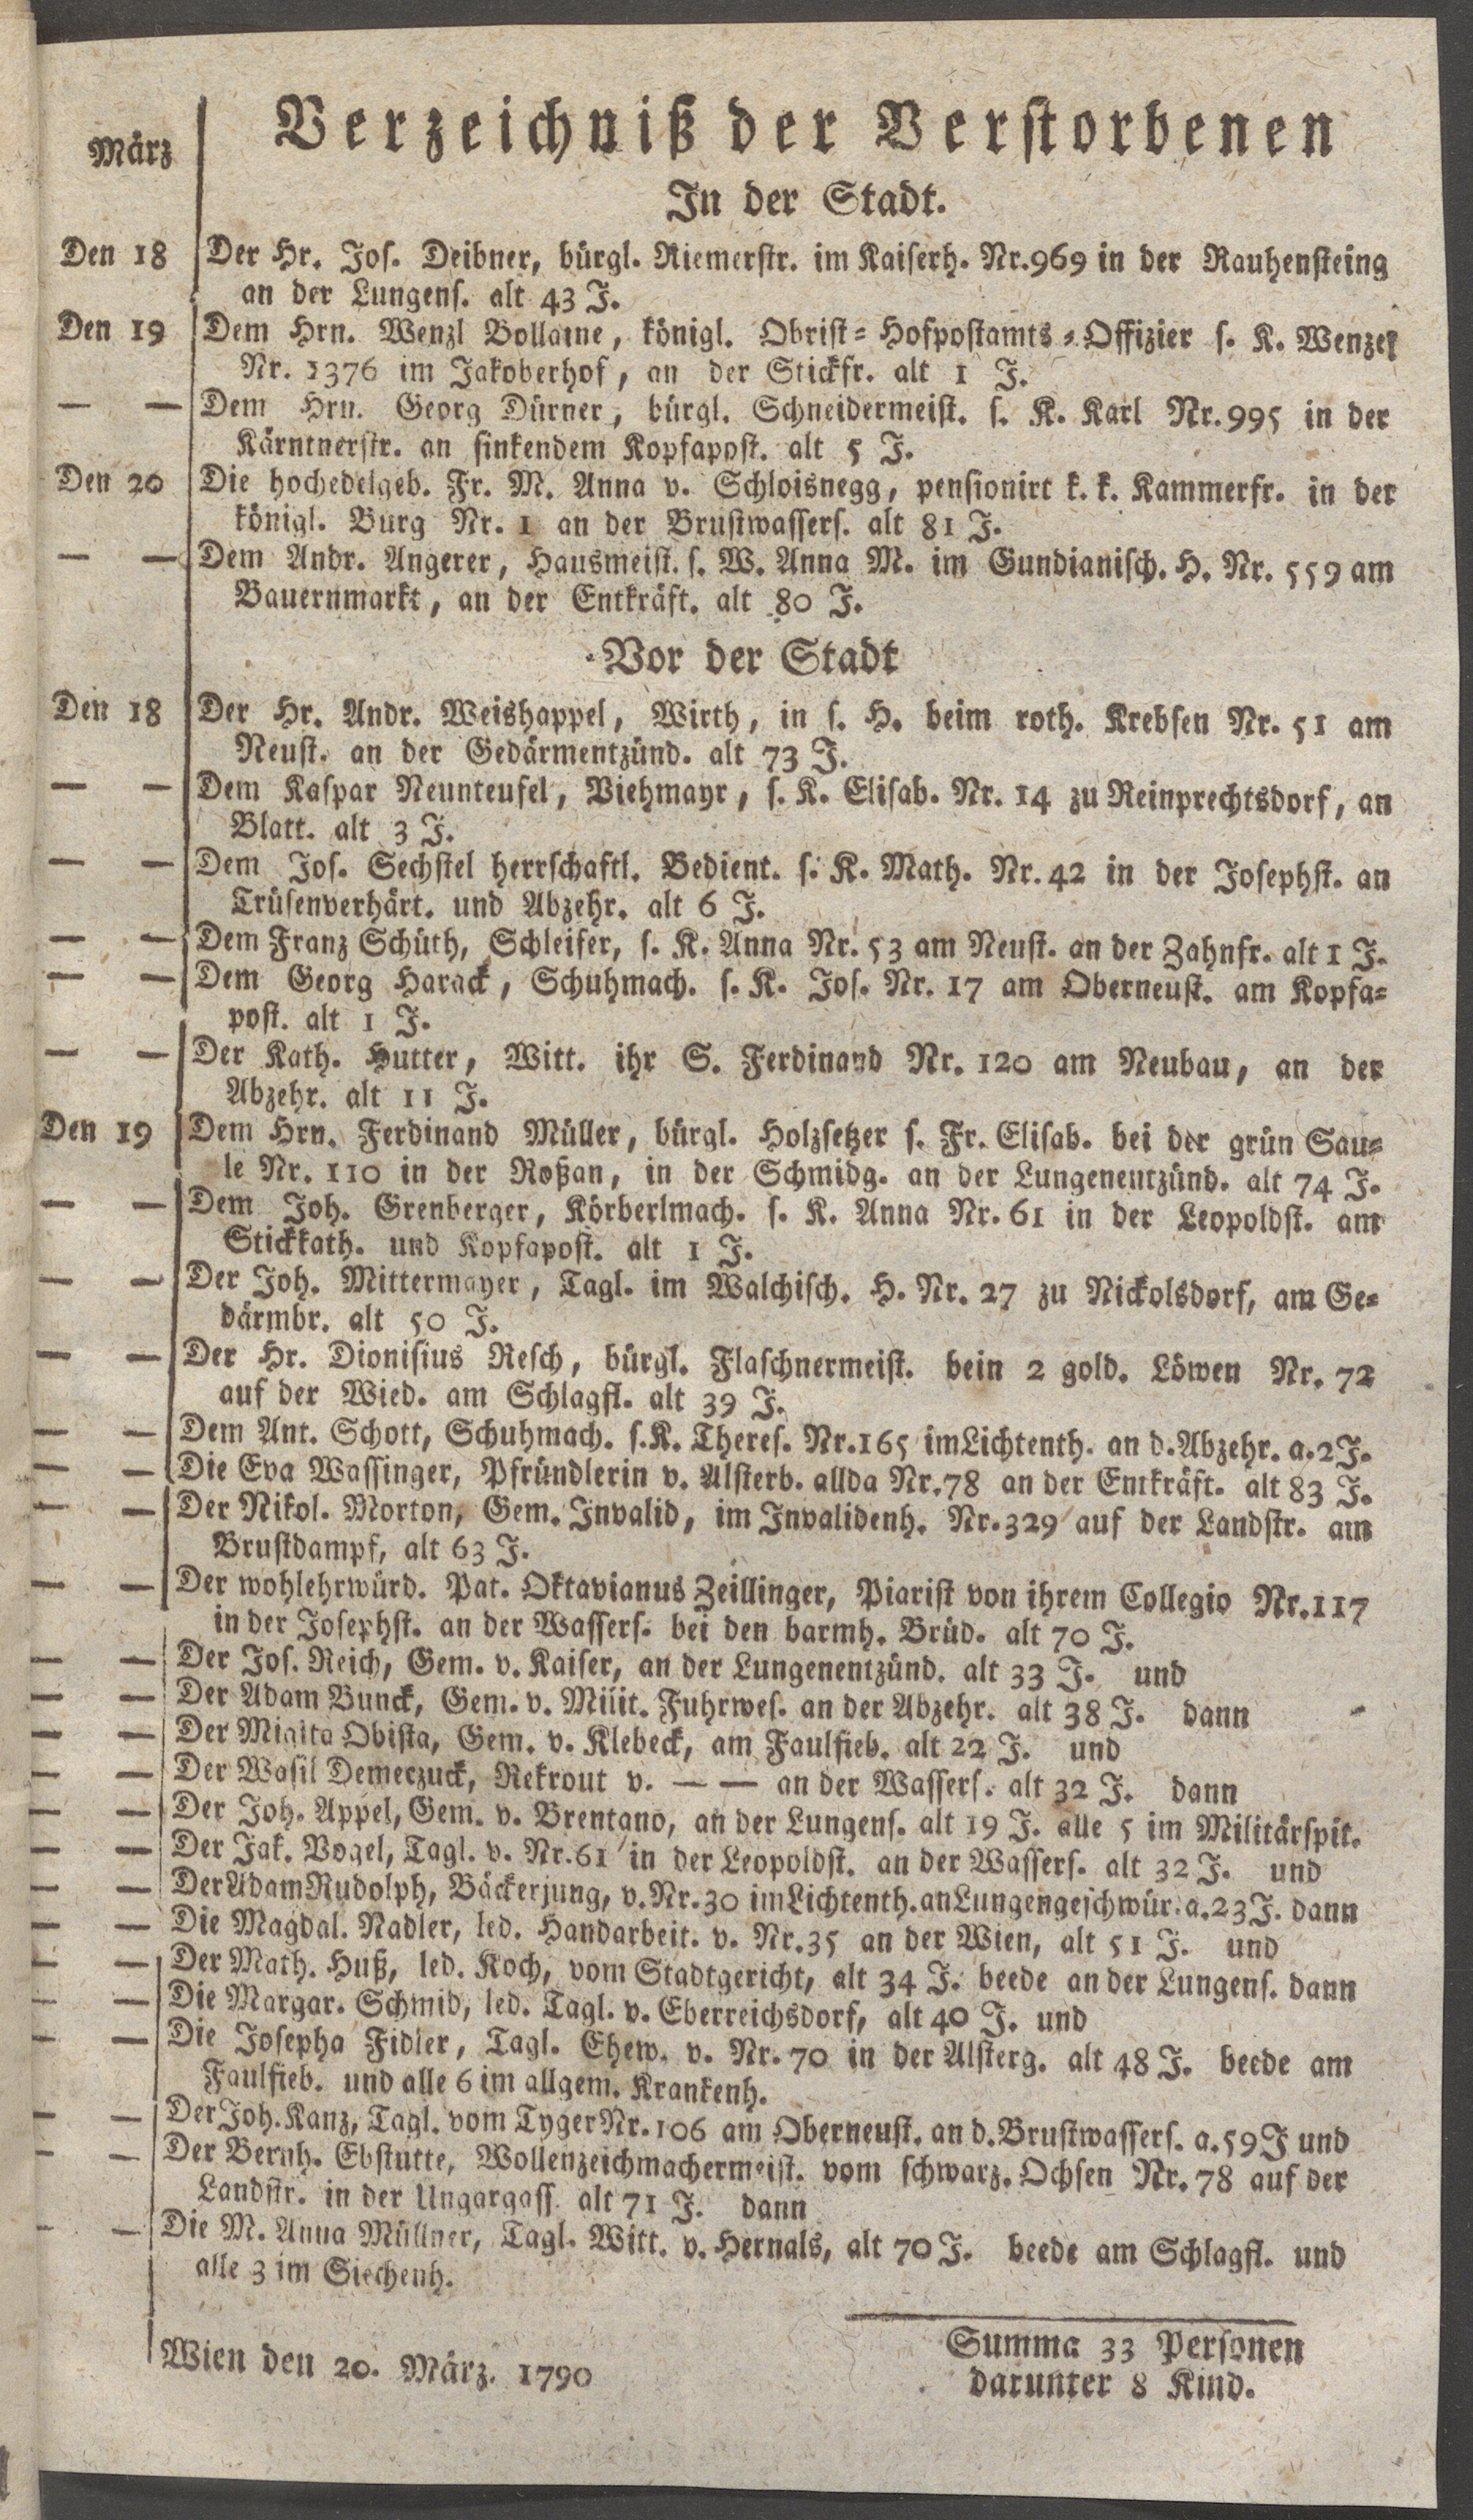 März
Verzeichniß der Verstorbenen
In der Stadt.
Den 18 Der Hr. Jos. Deibner, bürgl. Riemerstr. im Kaiserh. Nr.969 in der Rauhensteing
an der Lungens. alt 43 J.
Den 19 Dem Hrn. Wenzl Bollame, königl. Obrist-Hofpostamts-Offizier s. K. Wenzel
Nr. 1376 im Jakoberhof, an der Stickfr. alt 1 J.
— — Dem Hrn. Georg Dürner, bürgl. Schneidermeist. s. K. Karl Nr.995 in der
Kärntnerstr. an sinkendem Kopfapost. alt 5 J.
Den 20 Die hochedelgeb. Fr. M. Anna v. Schloisnegg, pensionirt k. k. Kammerfr. in der
königl. Burg Nr. 1 an der Brustwassers. alt 81 J.
— — Dem Andr. Angerer, Hausmeist. s. W. Anna M. im Gundianisch. H. Nr. 559 am
Bauernmarkt, an der Entkräft. alt 80 J.
Vor der Stadt
Den 18 Der Hr. Andr. Weishappel, Wirth, in s. H. beim roth. Krebsen Nr. 51 am
Neust. an der Gedärmentzünd. alt 73 J.
— — Dem Kaspar Neunteufel, Viehmayr, s. K. Elisab. Nr. 14 zu Reinprechtsdorf, an
Blatt. alt 3 J.
— — Dem Jos. Sechstel herrschaftl. Bedient. s. K. Math. Nr. 42 in der Josephst. an
Trüsenverhärt. und Abzehr. alt 6 J.
— — Dem Franz Schüth, Schleifer, s. K. Anna Nr. 53 am Neust. an der Zahnfr. alt 1 J.
— — Dem Georg Harack, Schuhmach. s. K. Jos. Nr. 17 am Oberneust. am Kopfa-
post. alt 1 J.
— — Der Kath. Hutter, Witt. ihr S. Ferdinand Nr. 120 am Neubau, an der
Abzehr. alt 11 J.
Den 19 Dem Hrn. Ferdinand Müller, bürgl. Holzsetzer s. Fr. Elisab. bei der grün Sau-
le Nr. 110 in der Roßan, in der Schmidg. an der Lungenentzünd. alt 74 J.
— — Dem Joh. Grenberger, Körberlmach. s. K. Anna Nr. 61 in der Leopoldst. am
Stickkath. und Kopfapost. alt 1 J.
— — Der Joh. Mittermayer, Tagl. im Walchisch. H. Nr. 27 zu Nickolsdorf, am Ge-
därmbr. alt 50 J.
— — Der Hr. Dionisius Resch, bürgl. Flaschnermeist. bein 2 gold. Löwen Nr. 72
auf der Wied. am Schlagfl. alt 39 J.
— — Dem Ant. Schott, Schuhmach. s. K. Theres. Nr.165 im Lichtenth. an d. Abzehr. a. 2 J.
— — Die Eva Wassinger, Pfründlerin v. Alsterb. allda Nr. 78 an der Entkräft. alt 83 J.
— — Der Nikol. Morton, Gem. Invalid, im Invalidenh. Nr. 329 auf der Landstr. am
Brustdampf, alt 63 J.
— — Der wohlehrwürd. Pat. Oktavianus Zeillinger, Piarist von ihrem Collegio Nr. 117
in der Josephst. an der Wassers. bei den barmh. Brüd. alt 70 J.
— — Der Jos. Reich, Gem. v. Kaiser, an der Lungenentzünd. alt 33 J. und
— — Der Adam Bunck, Gem. v. Milit. Fuhrwes. an der Abzehr. alt 38 J. dann
— — Der Migita Obista, Gem. v. Klebeck, am Faulfieb. alt 22 J. und
— — Der Wasil Demerzuck, Rekrout v. — — an der Wassers. alt 32 J. dann
— — Der Joh. Appel, Gem. v. Brentano, an der Lungens. alt 19 J. alle 5 im Militärspit.
— — Der Jak. Vogel, Tagl. v. Nr. 61 in der Leopoldst. an der Wassers. alt 32 J. und
— — Der Adam Rudolph, Bäckerjung, v. Nr. 30 im Lichtenth. an Lungengeschwür. a. 23 J. dann
— — Die Magdal. Nadler, led. Handarbeit. v. Nr. 35 an der Wien, alt 51 J. und
— — Der Math. Huß, led. Koch, vom Stadtgericht, alt 34 J. beede an der Lungens. dann
— — Die Margar. Schmid, led. Tagl. v. Eberreichsdorf, alt 40 J. und
— — Die Josepha Fidler, Tagl. Ehew. v. Nr. 70 in der Alsterg. alt 48 J. beede am
Faulfieb. und alle 6 im allgem. Krankenh.
— — Der Joh. Kanz, Tagl. vom Tyger Nr. 106 am Oberneust. an d. Brustwassers. a. 59 J und
— — Der Bernh. Ebstutte, Wollenzeichmachermeist. vom schwarz. Ochsen Nr. 78 auf der
Landstr. in der Ungargass. alt 71 J. dann
— — Die M. Anna Müllner, Tagl. Witt. v. Hernals, alt 70 J. beede am Schlagfl. und
alle 3 im Siechenh.
Summa 33 Personen
Wien den 20. März. 1790
darunter 8 Kind.